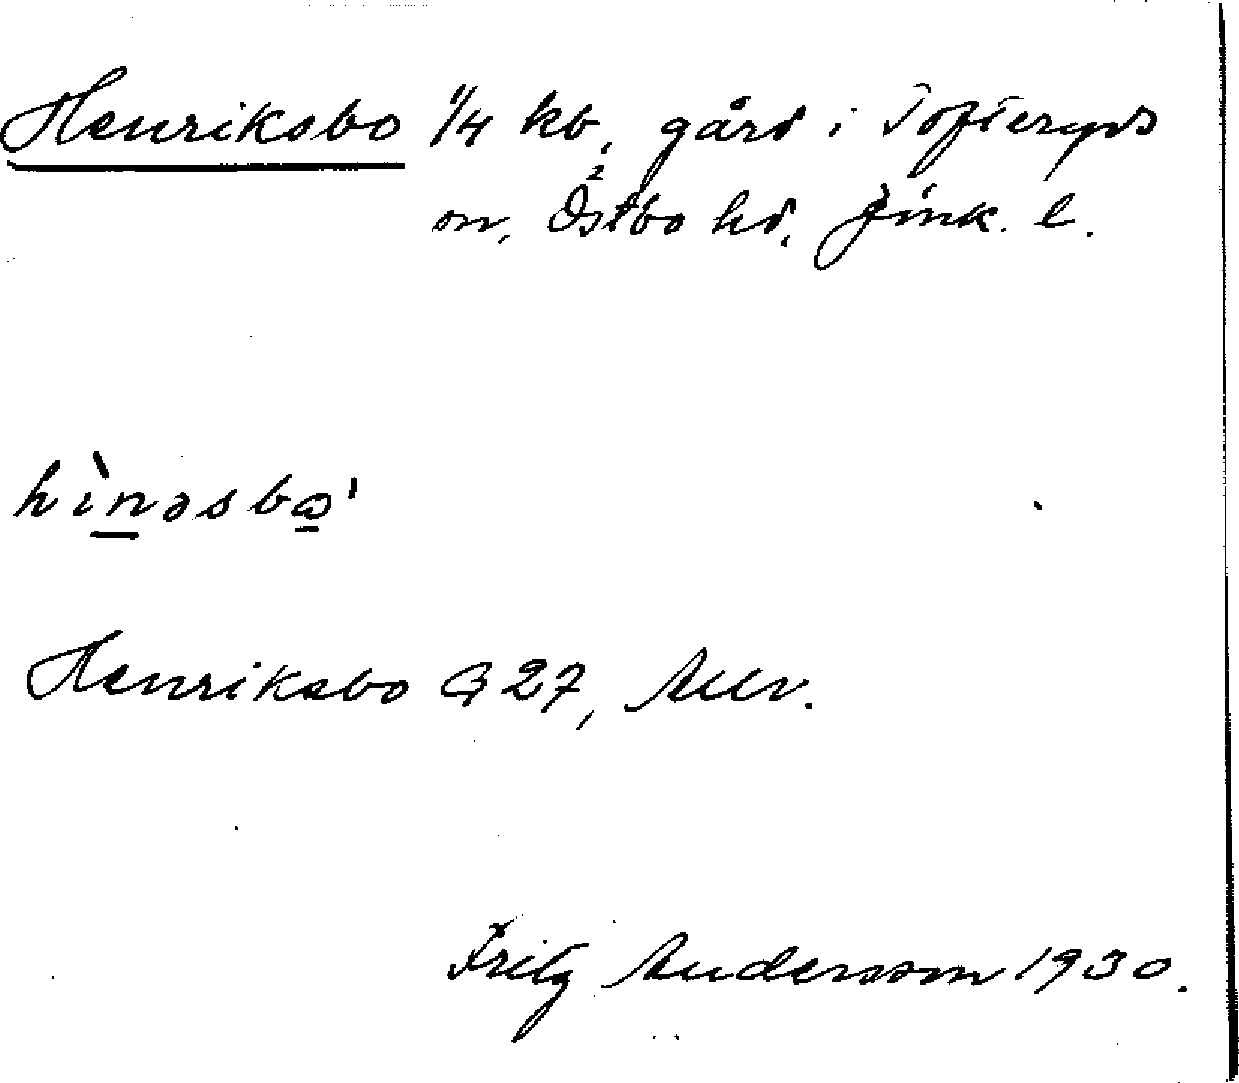 Henriksbo 1/4 kb, gård i Tofteryds
sn, Östbo hd, Jönk. l.
hìnəsbo'
Henriksbo G 27,
Fritz Andersson 1930.